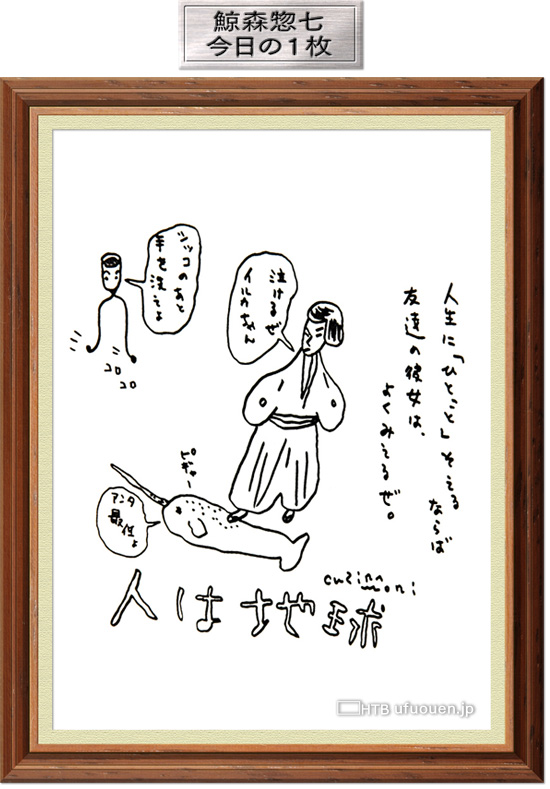 鯨森惣七
今日の1枚
人生に「ひとこと」そえる
ならば
友達の彼女は、
よくみえるぜ。
泣けるぜ
イルカちゃん
シッコのあと
手を洗えよ
コロ
コロ
ピギャー
アンタ
最低よ
人は地球
HTB ufuouen.jp